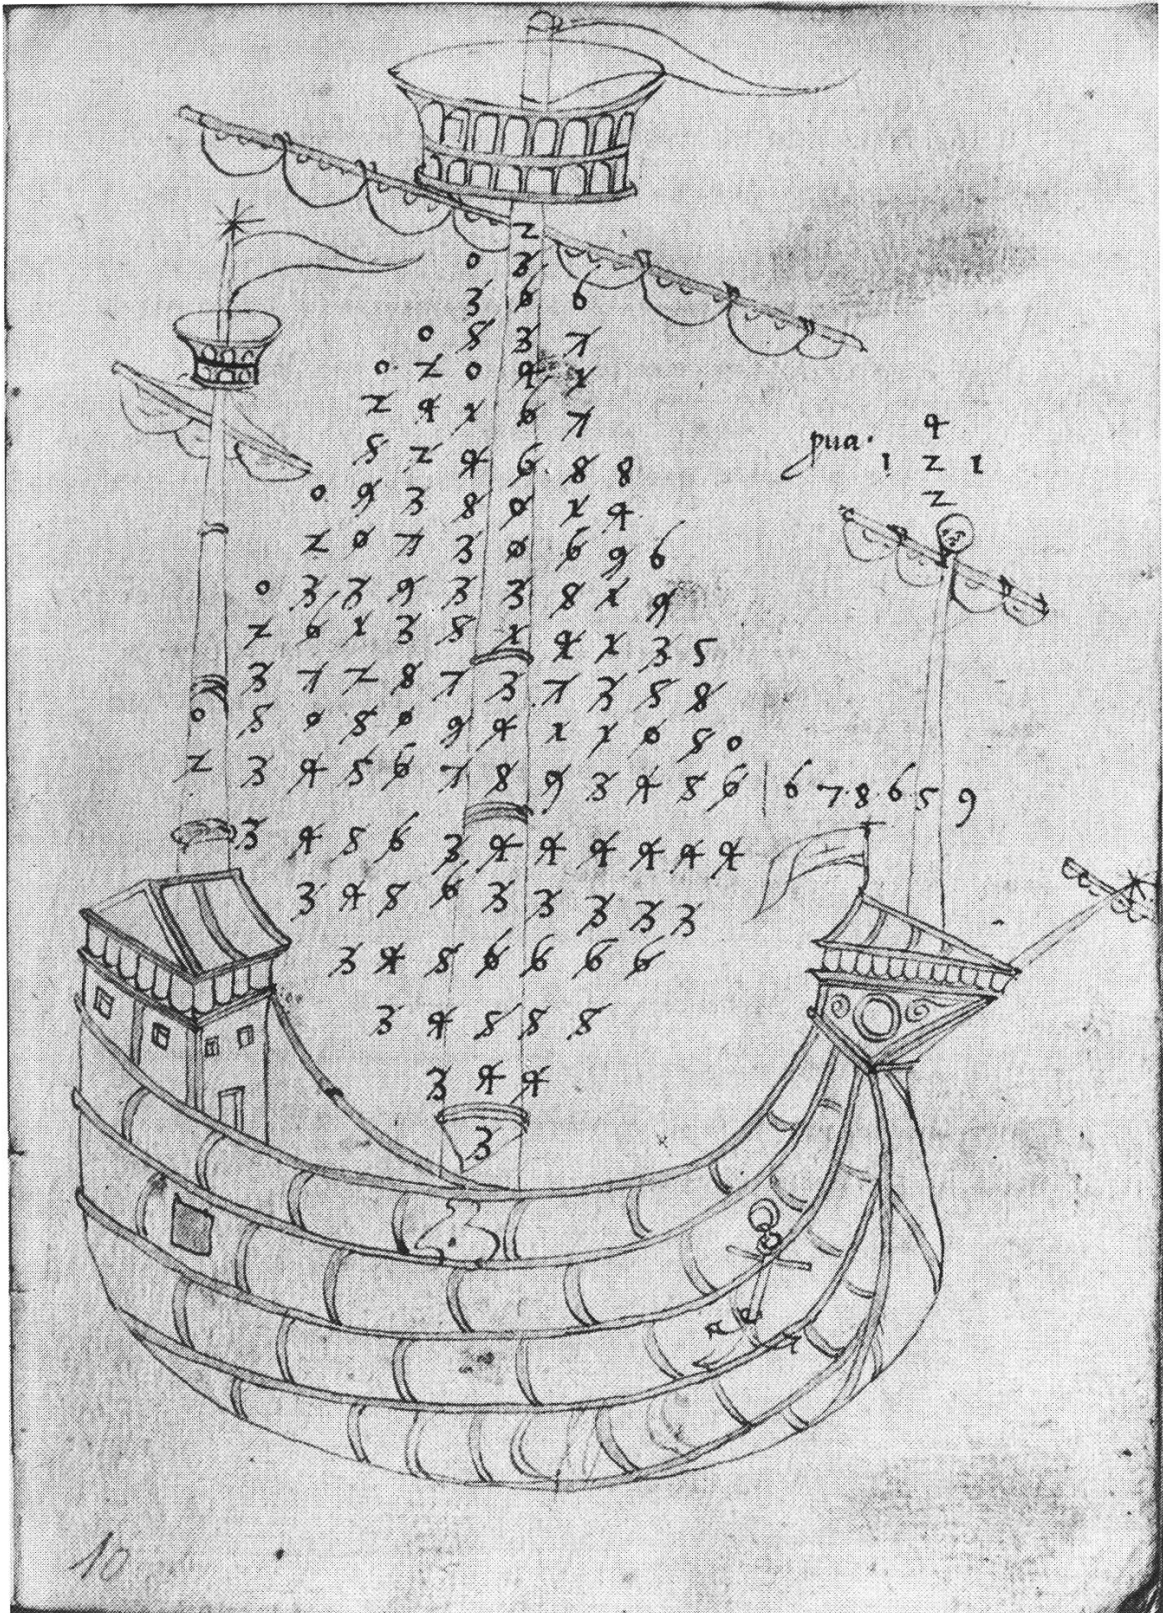 2
0 3
3 0 6
0 5 3 7
0 2 0 4 1
2 4 1 0 7
5 2 4 6 8 8
4
pua. 1 2 1
2
0 9 3 8 0 1 4
2 0 7 3 0 6 9 6
0 3 3 9 3 3 8 1 9
2 0 1 3 5 1 4 1 3 5
3 7 2 8 7 3 7 3 5 8
0 5 0 5 0 9 4 1 1 0 5 0
2 3 4 5 6 7 8 9 3 4 5 6 | 6 7. 8. 6 5 9
3 4 5 6 3 4 4 4 4 4 4
3 4 5 6 3 3 3 3 3
3 4 5 6 6 6 6
3 4 5 5 5
3 4 4
3
10